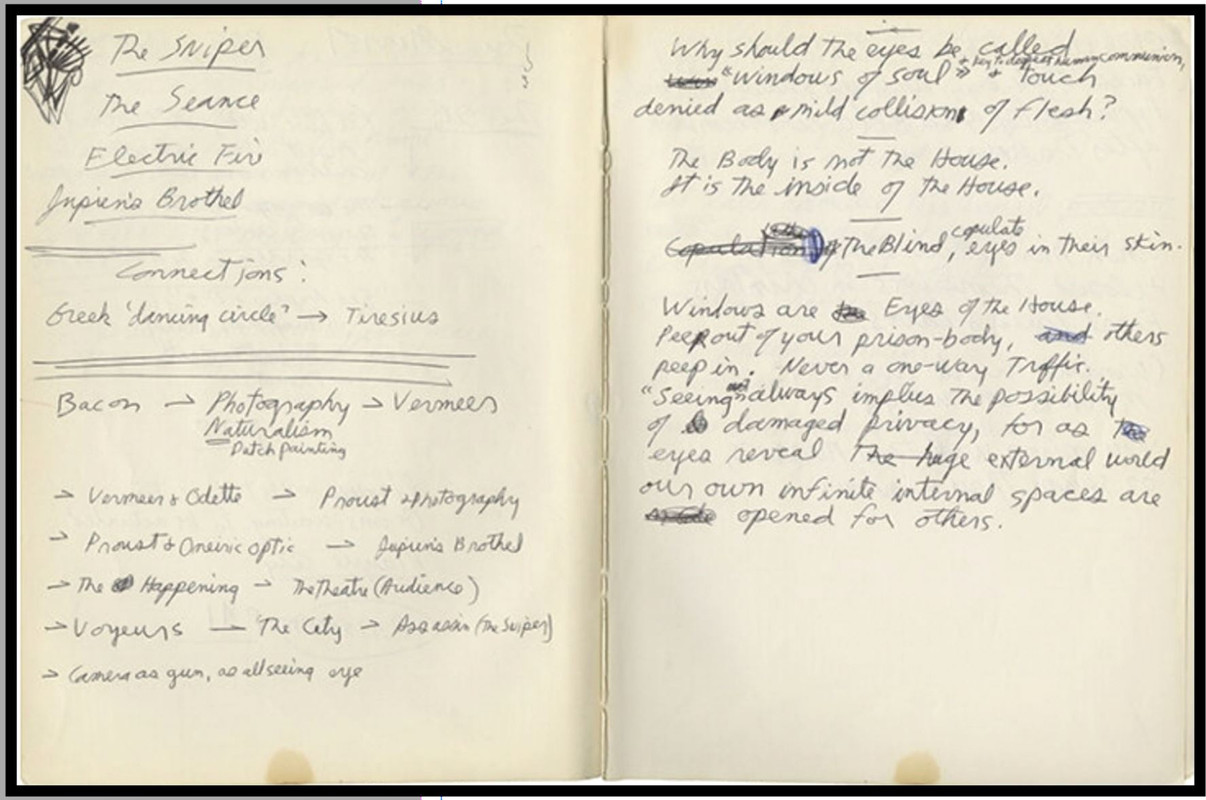 The Sniper
The Seance
Electric Fir
Jupien's Brothel
Connections:
Greek 'dancing circle' → Tiresius
Bacon → Photography → Vermeer
Naturalism
Dutch painting
→ Vermeer & Odette → Proust & photography
→ Proust & Oneiric optic → Jupien's Brothel
→ The Happening → The Theatre (Audience)
→ Voyeurs — The City → Assassin (The Sniper)
→ Camera as gun, as all seeing eye
Why should the eyes be called
+ key to deepest human communion,
"windows of soul" & touch
denied as mild collision of flesh?
The Body is not the House.
It is the inside of the House.
copulate
Copulation of The Blind, eyes in their skin.
Windows are Eyes of the House.
Peep out of your prison-body, and others
peep in. Never a one-way Traffic.
"Seeing" always implies the possibility
of damaged privacy, for as the
eyes reveal The huge external world
our own infinite internal spaces are
opened for others.